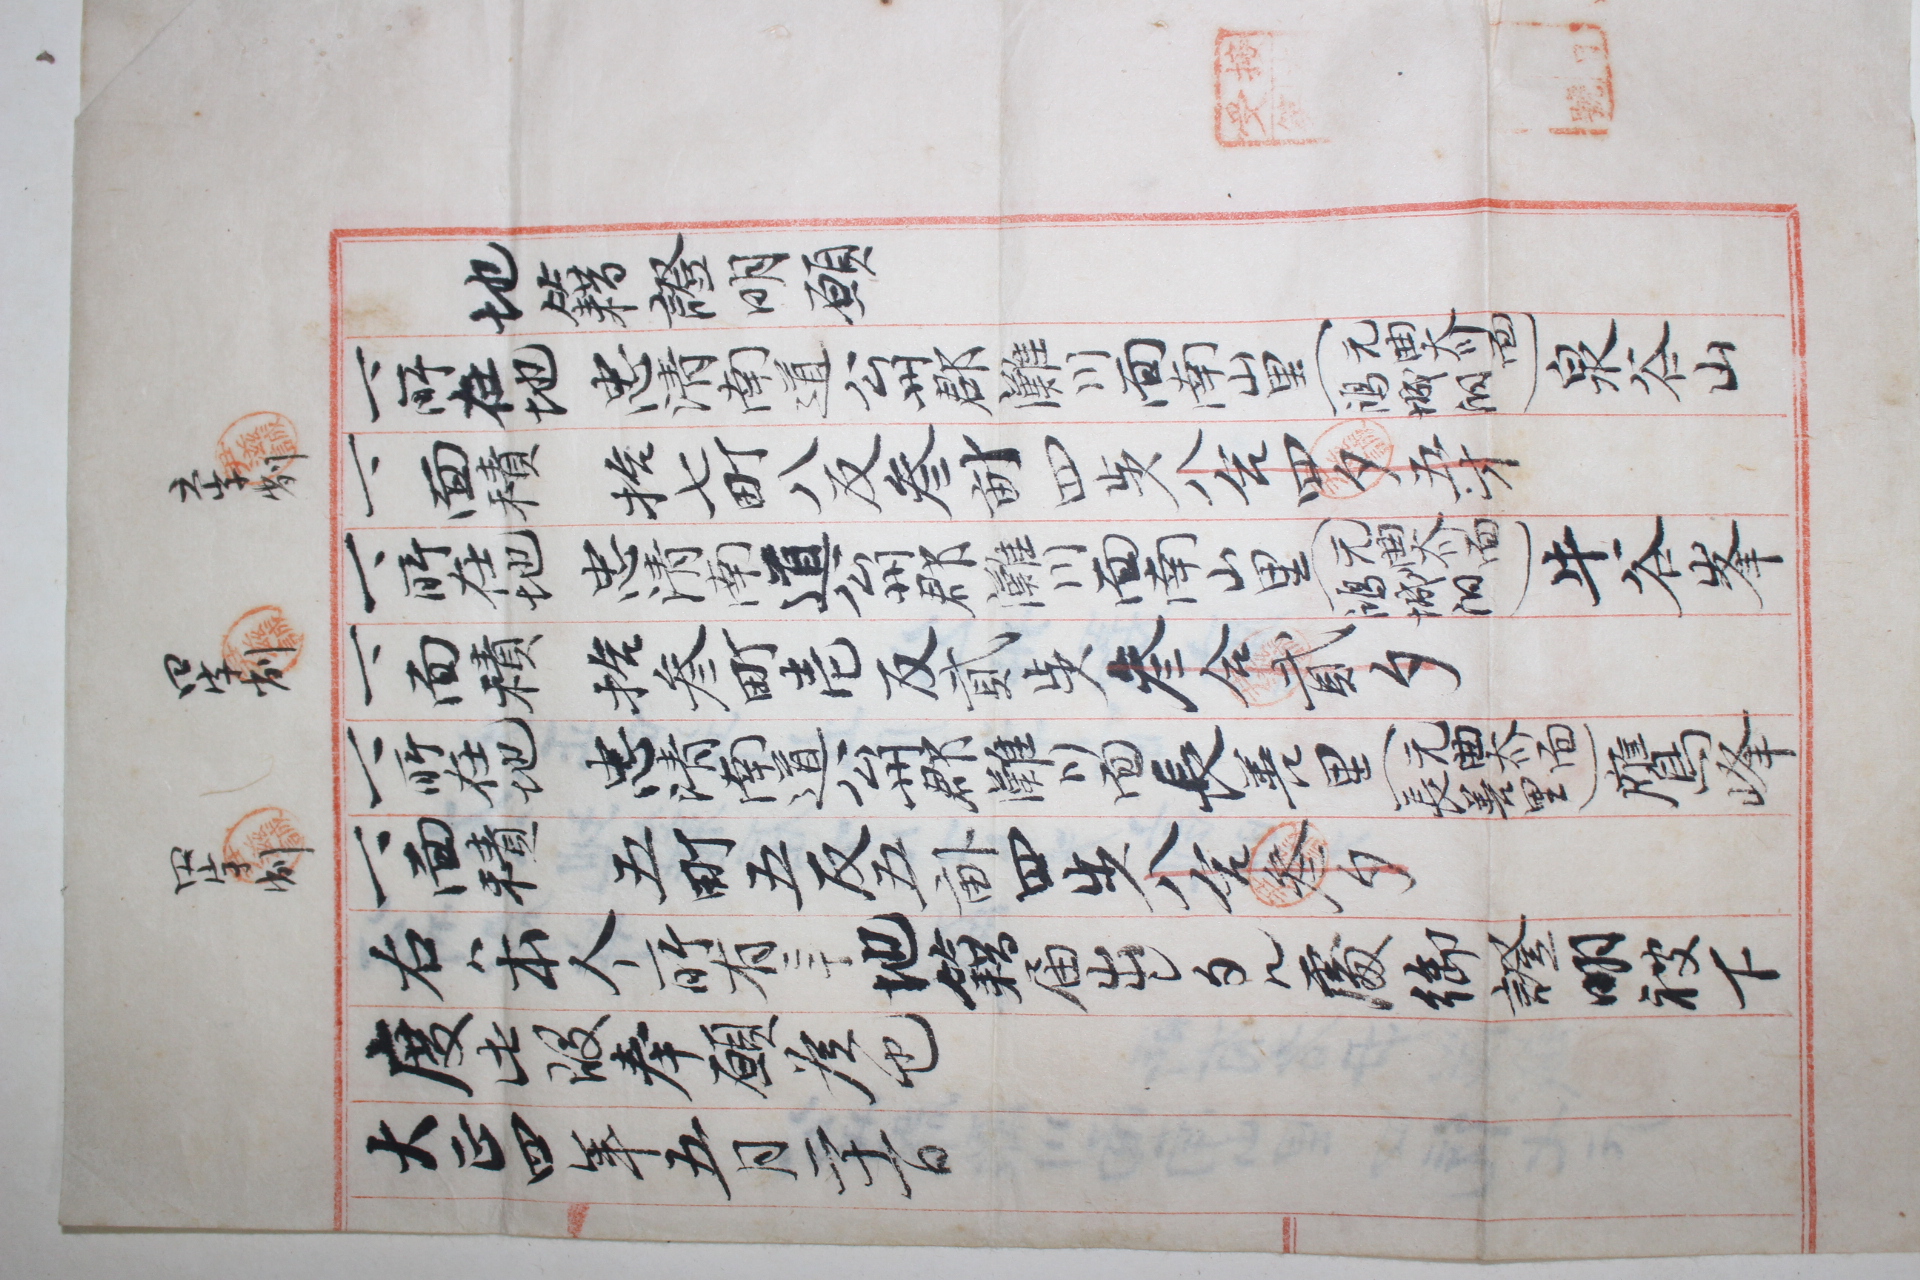 地籍證明願
一、所在地 忠清南道公州郡灘川面南山里(元曲火川面鴻城洞)泉谷山
一、面積 拾七町八反叁畝四步八合四夕五才
一、所在地 忠清南道公州郡灘川面南山里(元曲火川面鴻城洞)牛谷峯
一、面積 拾叁町壱反貳步叁合貳夕
一、所在地 忠清南道公州郡灘川面長善里(元曲火川面長善里)鷹峰
一、面積 五町五反五畝四步八合叁夕
右ハ本人所有ニテ地籍届出シタル處御證明被下
度此段奉願候也
大正四年五月二十一日
六字削
四字削
四字削
尹滋誠信
接受
號